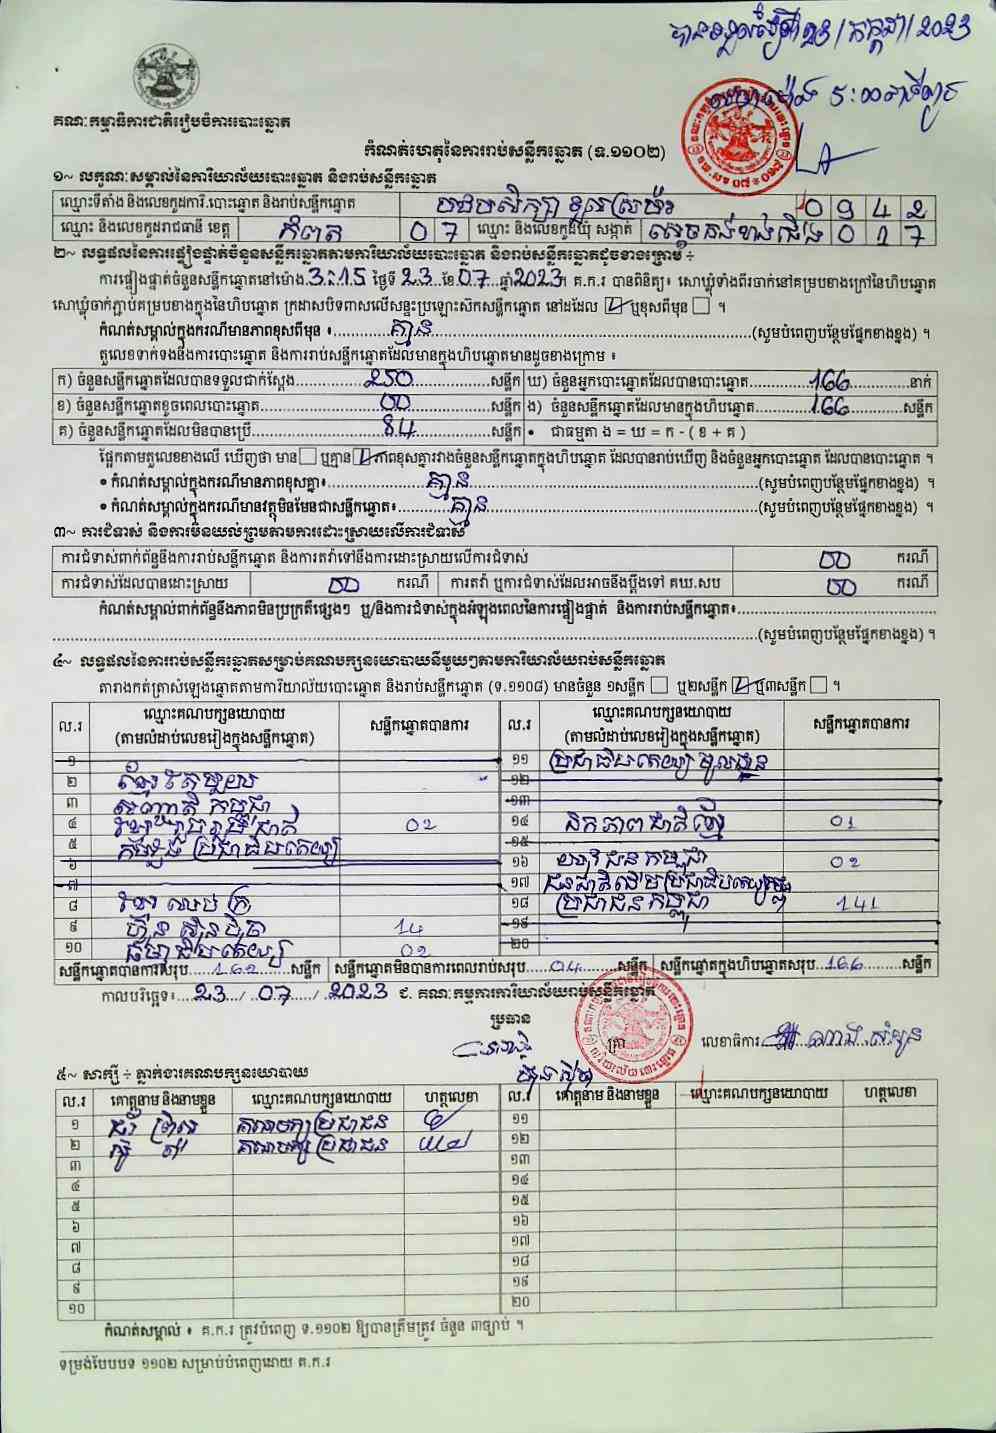 បានទទួលថ្ងៃទី 23 / កក្កដា / 2023
ម៉ោង 5:00 នាទីល្ងាច
គណៈកម្មាធិការជាតិរៀបចំការបោះឆ្នោត
កំណត់ហេតុនៃការរាប់សន្លឹកឆ្នោត (ទ.១១០២)
១~ លក្ខណៈសម្គាល់នៃការិយាល័យបោះឆ្នោត និងរាប់សន្លឹកឆ្នោត
ឈ្មោះទីតាំង និងលេខកូដការិ.បោះឆ្នោត និងរាប់សន្លឹកឆ្នោត បឋមសិក្សា 0 9 4 2
ឈ្មោះ និងលេខកូដរាជធានី ខេត្ត កំពត 0 7 ឈ្មោះ និងលេខកូដឃុំ សង្កាត់ ស្តេចគង់ខាងជើង 0 1 7
២~ លទ្ធផលនៃការផ្ទៀងផ្ទាត់ចំនួនសន្លឹកឆ្នោតតាមការិយាល័យបោះឆ្នោត និងរាប់សន្លឹកឆ្នោតដូចខាងក្រោម ÷
ការផ្ទៀងផ្ទាត់ចំនួនសន្លឹកឆ្នោតនៅម៉ោង 3:15 ថ្ងៃទី 23 ខែ 07 ឆ្នាំ 2023 ។ គ.ក.រ បានពិនិត្យ៖ សោឃ្លុំទាំងពីរចាក់នៅគម្របខាងក្រៅនៃហិបឆ្នោត
សោឃ្លុំចាក់ភ្ជាប់គម្របខាងក្នុងនៃហិបឆ្នោត ក្រដាសបិទពាសលើសន្ទះប្រឡោះស៊កសន្លឹកឆ្នោត នៅដដែល ☑ ឬខុសពីមុន ☐ ។
កំណត់សម្គាល់ក្នុងករណីមានភាពខុសពីមុន ៖ គ្មាន (សូមបំពេញបន្ថែមផ្នែកខាងខ្នង) ។
តួលេខទាក់ទងនឹងការបោះឆ្នោត និងការរាប់សន្លឹកឆ្នោតដែលមានក្នុងហិបឆ្នោតមានដូចខាងក្រោម ៖
ក) ចំនួនសន្លឹកឆ្នោតដែលបានទទួលជាក់ស្តែង 250 សន្លឹក ឃ) ចំនួនអ្នកបោះឆ្នោតដែលបានបោះឆ្នោត 166 នាក់
ខ) ចំនួនសន្លឹកឆ្នោតខូចពេលបោះឆ្នោត 00 សន្លឹក ង) ចំនួនសន្លឹកឆ្នោតដែលមានក្នុងហិបឆ្នោត 166 សន្លឹក
គ) ចំនួនសន្លឹកឆ្នោតដែលមិនបានប្រើ 84 សន្លឹក • ជាធម្មតា ង = ឃ = ក - ( ខ + គ )
ផ្អែកតាមតួលេខខាងលើ ឃើញថា មាន ☐ ឬគ្មាន ☑ ភាពខុសគ្នារវាងចំនួនសន្លឹកឆ្នោតក្នុងហិបឆ្នោត ដែលបានរាប់ឃើញ និងចំនួនអ្នកបោះឆ្នោត ដែលបានបោះឆ្នោត ។
• កំណត់សម្គាល់ក្នុងករណីមានភាពខុសគ្នា៖ គ្មាន (សូមបំពេញបន្ថែមផ្នែកខាងខ្នង) ។
• កំណត់សម្គាល់ក្នុងករណីមានវត្ថុមិនមែនជាសន្លឹកឆ្នោត៖ គ្មាន (សូមបំពេញបន្ថែមផ្នែកខាងខ្នង) ។
៣~ ការជំទាស់ និងការមិនយល់ព្រមតាមការដោះស្រាយលើការជំទាស់
ការជំទាស់ពាក់ព័ន្ធនឹងការរាប់សន្លឹកឆ្នោត និងការតវ៉ាទៅនឹងការដោះស្រាយលើការជំទាស់ 00 ករណី
ការជំទាស់ដែលបានដោះស្រាយ 00 ករណី ការតវ៉ា ឬការជំទាស់ដែលអាចនឹងប្តឹងទៅ គឃ.សប 00 ករណី
កំណត់សម្គាល់ពាក់ព័ន្ធនឹងភាពមិនប្រក្រតីផ្សេងៗ ឬ/និងការជំទាស់ក្នុងអំឡុងពេលនៃការផ្ទៀងផ្ទាត់ និងការរាប់សន្លឹកឆ្នោត៖
(សូមបំពេញបន្ថែមផ្នែកខាងខ្នង) ។
៤~ លទ្ធផលនៃការរាប់សន្លឹកឆ្នោតសម្រាប់គណបក្សនយោបាយនីមួយៗតាមការិយាល័យរាប់សន្លឹកឆ្នោត
តារាងកត់ត្រាសំឡេងឆ្នោតតាមការិយាល័យបោះឆ្នោត និងរាប់សន្លឹកឆ្នោត (ទ.១១០៨) មានចំនួន ១សន្លឹក ☐ ឬ២សន្លឹក ☑ ឬ៣សន្លឹក ☐ ។
ល.រ ឈ្មោះគណបក្សនយោបាយ (តាមលំដាប់លេខរៀងក្នុងសន្លឹកឆ្នោត) សន្លឹកឆ្នោតបានការ ល.រ ឈ្មោះគណបក្សនយោបាយ (តាមលំដាប់លេខរៀងក្នុងសន្លឹកឆ្នោត) សន្លឹកឆ្នោតបានការ
១ ១១ ប្រជាធិបតេយ្យមូលដ្ឋាន
២ ខ្មែរតែមួយ ១២
៣ សញ្ជាតិកម្ពុជា ១៣
៤ ខ្មែររួបរួមជាតិ 02 ១៤ ឯកភាពជាតិខ្មែរ 01
៥ កម្លាំងប្រជាធិបតេយ្យ ១៥
៦ ១៦ យុវជនកម្ពុជា 02
៧ ១៧ ជនជាតិដើមប្រជាធិបតេយ្យកម្ពុជា
៨ ខ្មែរឈប់ក្រ ១៨ ប្រជាជនកម្ពុជា 141
៩ ហ៊្វុនស៊ិនប៉ិច 14 ១៩
១០ ធម្មាធិបតេយ្យ 02 ២០
សន្លឹកឆ្នោតបានការសរុប 162 សន្លឹក សន្លឹកឆ្នោតមិនបានការពេលរាប់សរុប 04 សន្លឹក សន្លឹកឆ្នោតក្នុងហិបឆ្នោតសរុប 166 សន្លឹក
កាលបរិច្ឆេទ៖ 23 / 07 / 2023 ជ. គណៈកម្មការការិយាល័យរាប់សន្លឹកឆ្នោត
ប្រធាន
ត្រា លេខាធិការ
៥~ សាក្សី ÷ ភ្នាក់ងារគណបក្សនយោបាយ
ល.រ គោត្តនាម និងនាមខ្លួន ឈ្មោះគណបក្សនយោបាយ ហត្ថលេខា ល.រ គោត្តនាម និងនាមខ្លួន ឈ្មោះគណបក្សនយោបាយ ហត្ថលេខា
១ គណបក្សប្រជាជន ១១
២ គណបក្សប្រជាជន ១២
៣ ១៣
៤ ១៤
៥ ១៥
៦ ១៦
៧ ១៧
៨ ១៨
៩ ១៩
១០ ២០
កំណត់សម្គាល់ ៖ គ.ក.រ ត្រូវបំពេញ ទ.១១០២ ឱ្យបានត្រឹមត្រូវ ចំនួន ៣ច្បាប់ ។
ទម្រង់បែបបទ ១១០២ សម្រាប់បំពេញដោយ គ.ក.រ